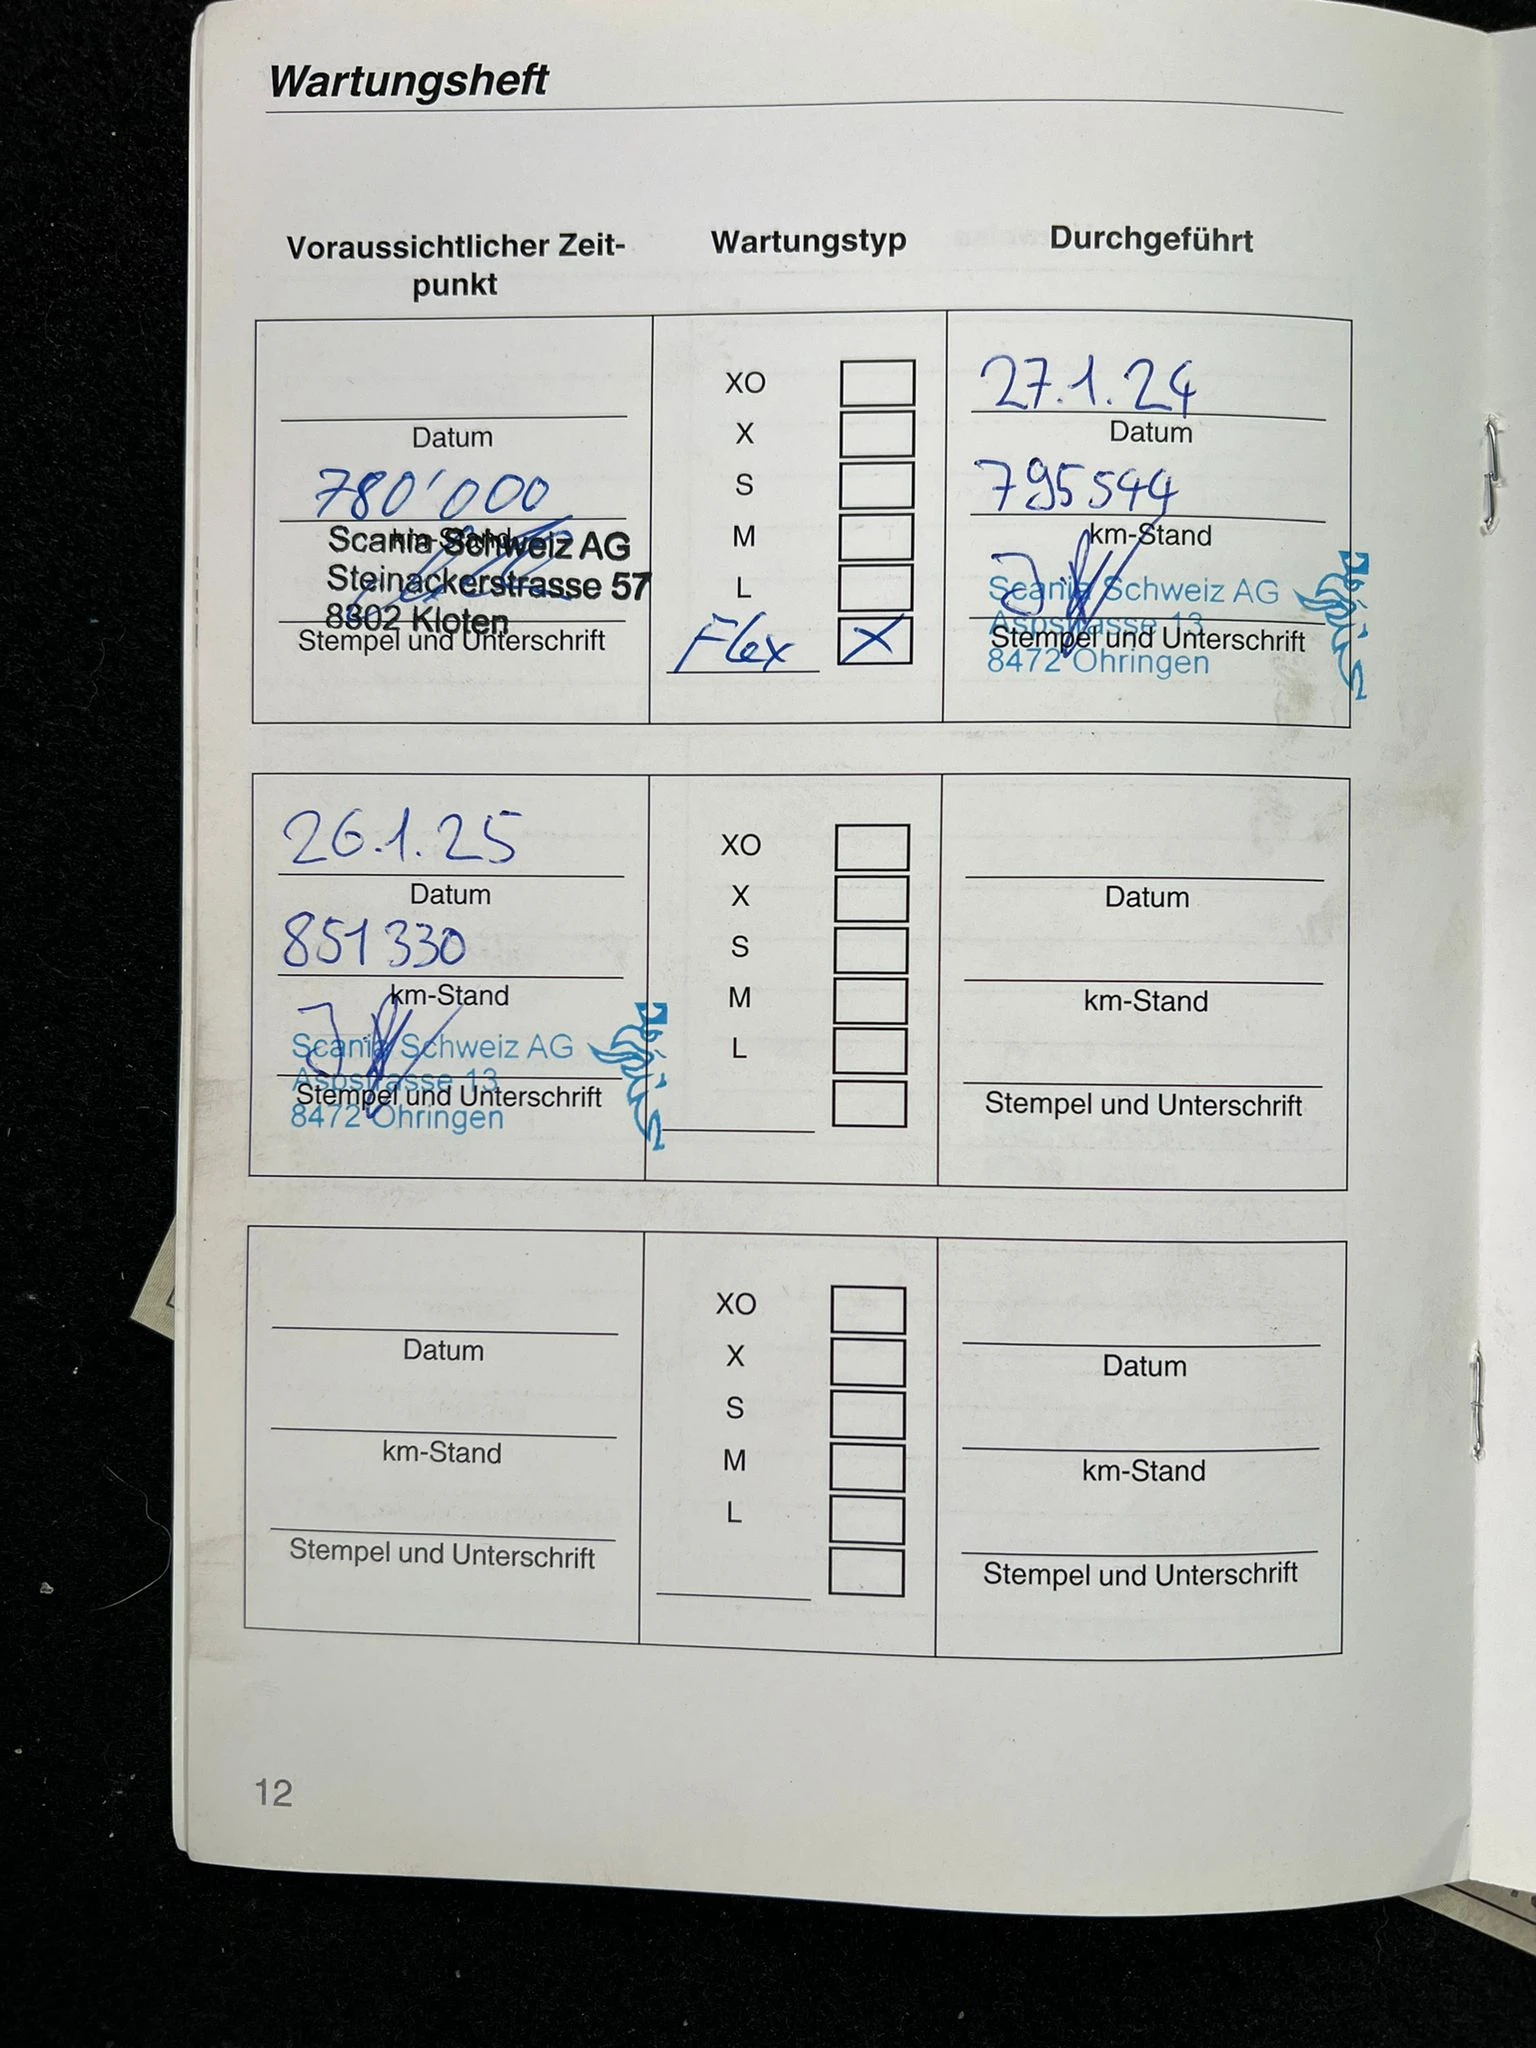 Wartungsheft
Voraussichtlicher Zeit-
punkt
Wartungstyp
Durchgeführt
Datum
780'000
km-Stand
Scania Schweiz AG
Steinackerstrasse 57
8302 Kloten
Stempel und Unterschrift
XO
X
S
M
L
Flex X
27.1.24
Datum
795544
km-Stand
Scania Schweiz AG
Aspstrasse 13
Stempel und Unterschrift
8472 Ohringen
26.1.25
Datum
851330
km-Stand
Scania Schweiz AG
Aspstrasse 13
Stempel und Unterschrift
8472 Ohringen
XO
X
S
M
L
Datum
km-Stand
Stempel und Unterschrift
Datum
km-Stand
Stempel und Unterschrift
XO
X
S
M
L
Datum
km-Stand
Stempel und Unterschrift
12